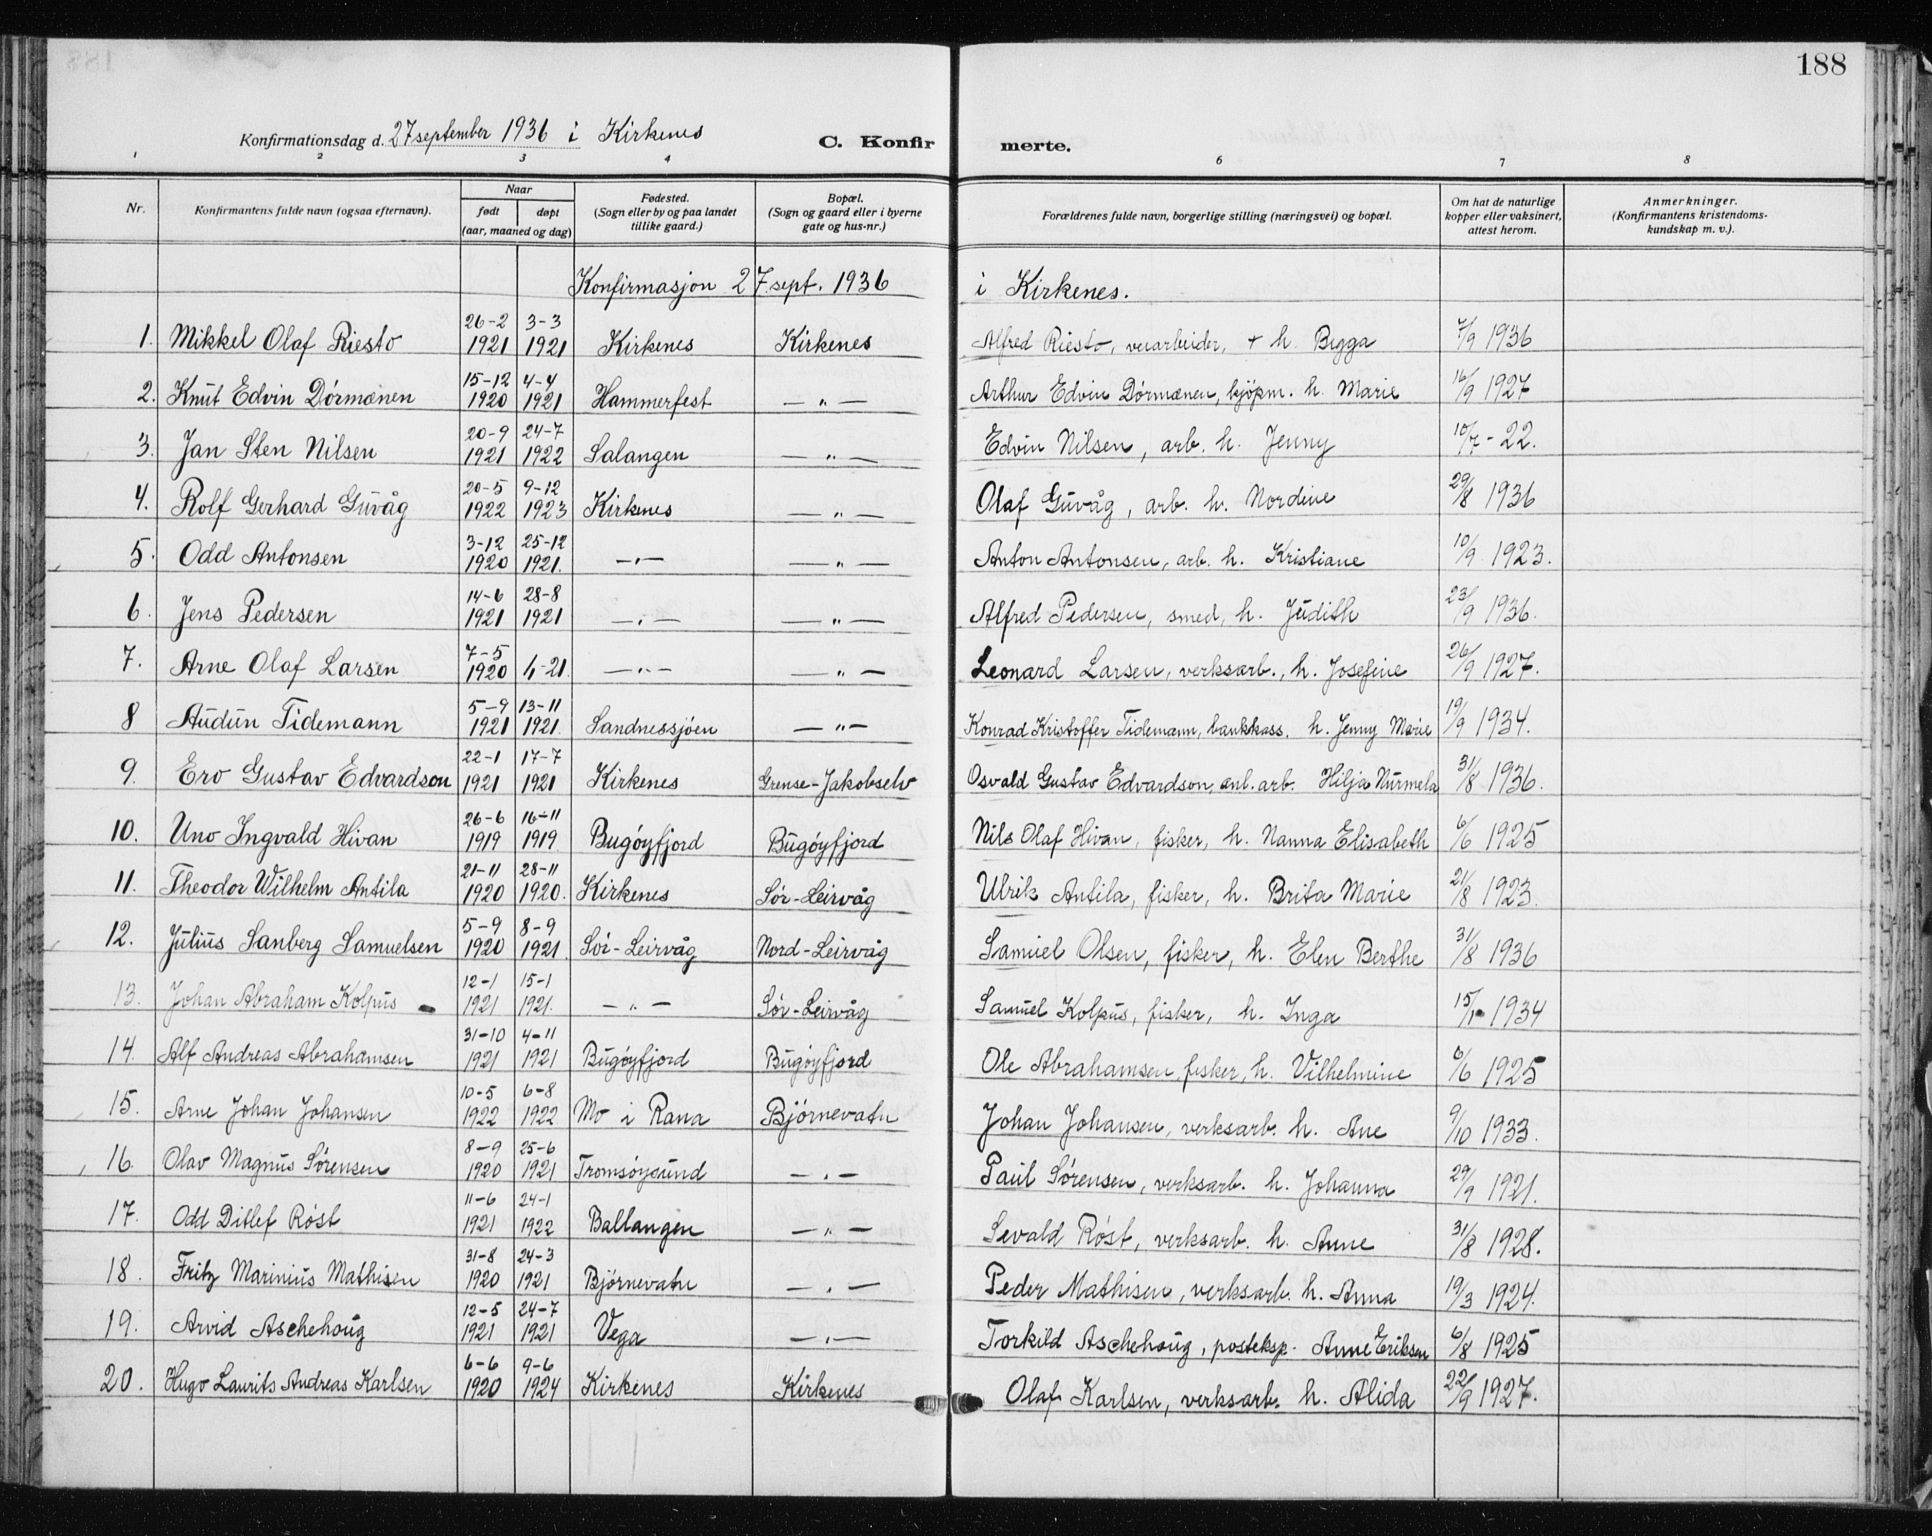 188
Konfirmationsdag d. 27 september 1936 i Kirkenes C. Konfirmerte.
1 2 3 4 6 7 8
Nr. Konfirmantens fulde navn (ogsaa efternavn). Naar født døpt (aar, maaned og dag) Fødested. (Sogn eller by og paa landet tillike gaard.) Bopæl. (Sogn og gaard eller i byerne gate og hus-nr.) Forældrenes fulde navn, borgerlige stilling (næringsvei) og bopæl. Om hat de naturlige kopper eller vaksinert, attest herom. Anmerkninger. (Konfirmantens kristendomskundskap m. v.).
Konfirmasjon 27 sept. 1936 i Kirkenes.
1. Mikkel Olaf Riesto 26-2 1921 3-3 1921 Kirkenes Kirkenes Alfred Riesto, + h. Bigga 7/9 1936
2. Knut Edvin Dørmænen 15-12 1920 4-4 1921 Hammerfest — " — Arthur Edvin Dørmænen, kjøpm. h. Marie 16/9 1927
3. Jan Sten Nilsen 20-9 1921 24-7 1922 Salangen — " — Edvin Nilsen, arb. h. Jenny 10/7 - 22.
4. Rolf Gerhard Guvåg 20-5 1922 9-12 1923 Kirkenes — " — Olaf Guvåg, arb. h. Nordine 29/8 1936
5. Odd Antonsen 3-12 1920 25-12 1921. — " — — " — Anton Antonsen, arb. h. Kristiane 10/9 1923.
6. Jens Pedersen 14-6 1921 28-8 1921 — " — — " — Alfred Pedersen, smed, h. Judith 23/9 1936.
7. Arne Olaf Larsen 7-5 1920 -21. — " — — " — Leonard Larsen, verksarb., h. Josefine 26/9 1927.
8 Audun Tidemann 5-9 1921 13-11 1921. Sandnessjøen — " — Konrad Kristoffer Tidemann, bankkass. h. Jenny Marie 19/9 1934.
9. Ero Gustav Edvardson 22-1 1921 17-7 1921 Kirkenes Grense-Jakobselv Osvald Gustav Edvardson, anl. arb. Hilja Nurmela 31/8 1936.
10. Uno Ingvald Hivan 26-6 1919 16-11 1919 Bugøyfjord Bugøyfjord Nils Olaf Hivan, fisker, h. Nanna Elisabeth 6/6 1925
11. Theodor Wilhelm Antila 21-11 1920 28-11 1920. Kirkenes Sør-Leirvåg Ulrik Antila, fisker, h. Brita Marie 21/8 1923.
12. Julius Sanberg Samuelsen 5-9 1920 8-9 1921. Sør-Leirvåg Nord-Leirvåg Samuel Olsen, fisker, h. Elen Berthe 31/8 1936
13. Johan Abraham Kolpus 12-1 1921 15-1 1921. — " — Sør-Leirvåg Samuel Kolpus, fisker, h. Inga 1934
14. Alf Andreas Abrahamsen 31-10 1921 4-11 1921 Bugøyfjord Bugøyfjord Ole Abrahamsen, fisker, h. Vilhelmine 6/6 1925
15. Arne Johan Johansen 10-5 1922 6-8 1922 Mo i Rana Bjørnevatn Johan Johansen, verksarb. h. Ane 9/10 1933.
16. Olav Magnus Sørensen 8-9 1920 25-6 1921 Tromsøysund — " — Paul Sørensen, verksarb. h. Johanna 29/9 1921.
17. Odd Ditlef Røst 11-6 1921 24-1 1922 Ballangen — " — Sevald Røst, verksarb. h. Anne 31/8 1928.
18. Fritz Marinius Mathisen 31-8 1920 24-3 1921 Bjørnevatn — " — Peder Mathisen, verksarb. h. Anna 19/3 1924.
19. Arvid Aschehoug 12-5 1921 24-7 1921 Vega — " — Torkild Aschehoug, posteksp. Anne Eriksen 6/8 1925
20. Hugo Laurits Andreas Karlsen 6-6 1920 9-6 1924 Kirkenes Kirkenes Olaf Karlsen, verksarb. h. Alida 22/9 1927.